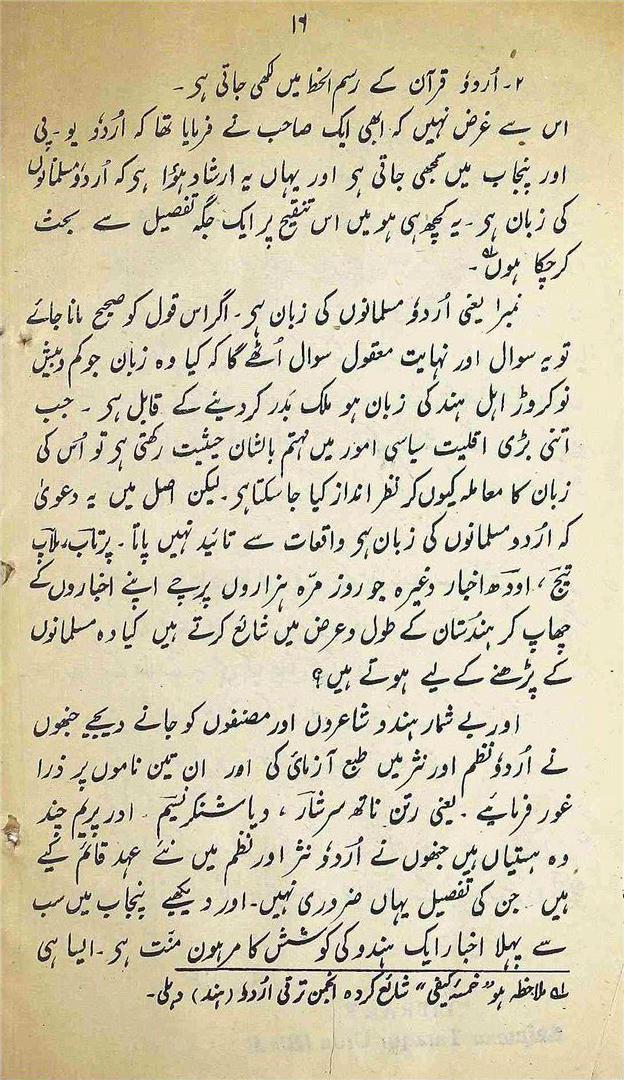 ۱۶
۲- اُردوٗ قرآن کے رسم الخط میں لکھی جاتی ہی۔
اس سے غرض نہیں کہ ابھی ایک صاحب نے فرمایا تھا کہ اُردوٗ یو۔پی
اور پنجاب میں سمجھی جاتی ہی اور یہاں یہ ارشاد ہوٗا ہی کہ اُردوٗ مسلمانوں
کی زبان ہی۔ یہ کچھ ہی ہو میں اس تنقیح پر ایک جگہ تفصیل سے بحث
کر چکا ہوں؎۱۔
نمبر۱ یعنی اُردوٗ مسلمانوں کی زبان ہی۔ اگر اس قول کو صحیح مانا جائے
تو یہ سوال اور نہایت معقول سوال اُٹھے گا کہ کیا وہ زبان جو کم و بیش
نو کروڑ اہل ہند کی زبان ہو ملک بدر کر دینے کے قابل ہی۔ جب
اتنی بڑی اقلیت سیاسی امور میں مہتم بالشان حیثیت رکھتی ہی تو اُس کی
زبان کا معاملہ کیوں کر نظر انداز کیا جا سکتا ہی۔ لیکن اصل میں یہ دعویٰ
کہ اردو مسلمانوں کی زبان ہی واقعات سے تائید نہیں پاتا۔ پرتاب، ملاپ
تیج، اودھ اخبار وغیرہ جو روز مرّہ ہزاروں پرچے اپنے اخباروں کے
چھاپ کر ہندُستان کے طول و عرض میں شائع کرتے ہیں کیا وہ مسلمانوں
کے پڑھنے کے لیے ہوتے ہیں؟
اور بے شمار ہندو شاعروں اور مصنفوں کو جانے دیجیے جنھوں
نے اُردوٗ نظم اور نثر میں طبع آزمائی کی اور ان تین ناموں پر ذرا
غور فرمایئے۔ یعنی رتن ناتھ سرشار، دیا شنکر نسیم۔ اور پریم چند
وہ ہستیاں ہیں جنھوں نے اُردوٗ نثر اور نظم میں نئے عہد قائم کیے
ہیں جن کی تفصیل یہاں ضروری نہیں۔ اور دیکھیے پنجاب میں سب
سے پہلا اخبار ایک ہندو کی کوشش کا مرہون منّت ہی۔ ایسا ہی
؎۱ ملاحظہ ہو "خمسۂ کیفی" شائع کردہ انجمن ترقی اردوٗ (ہند) دہلی۔